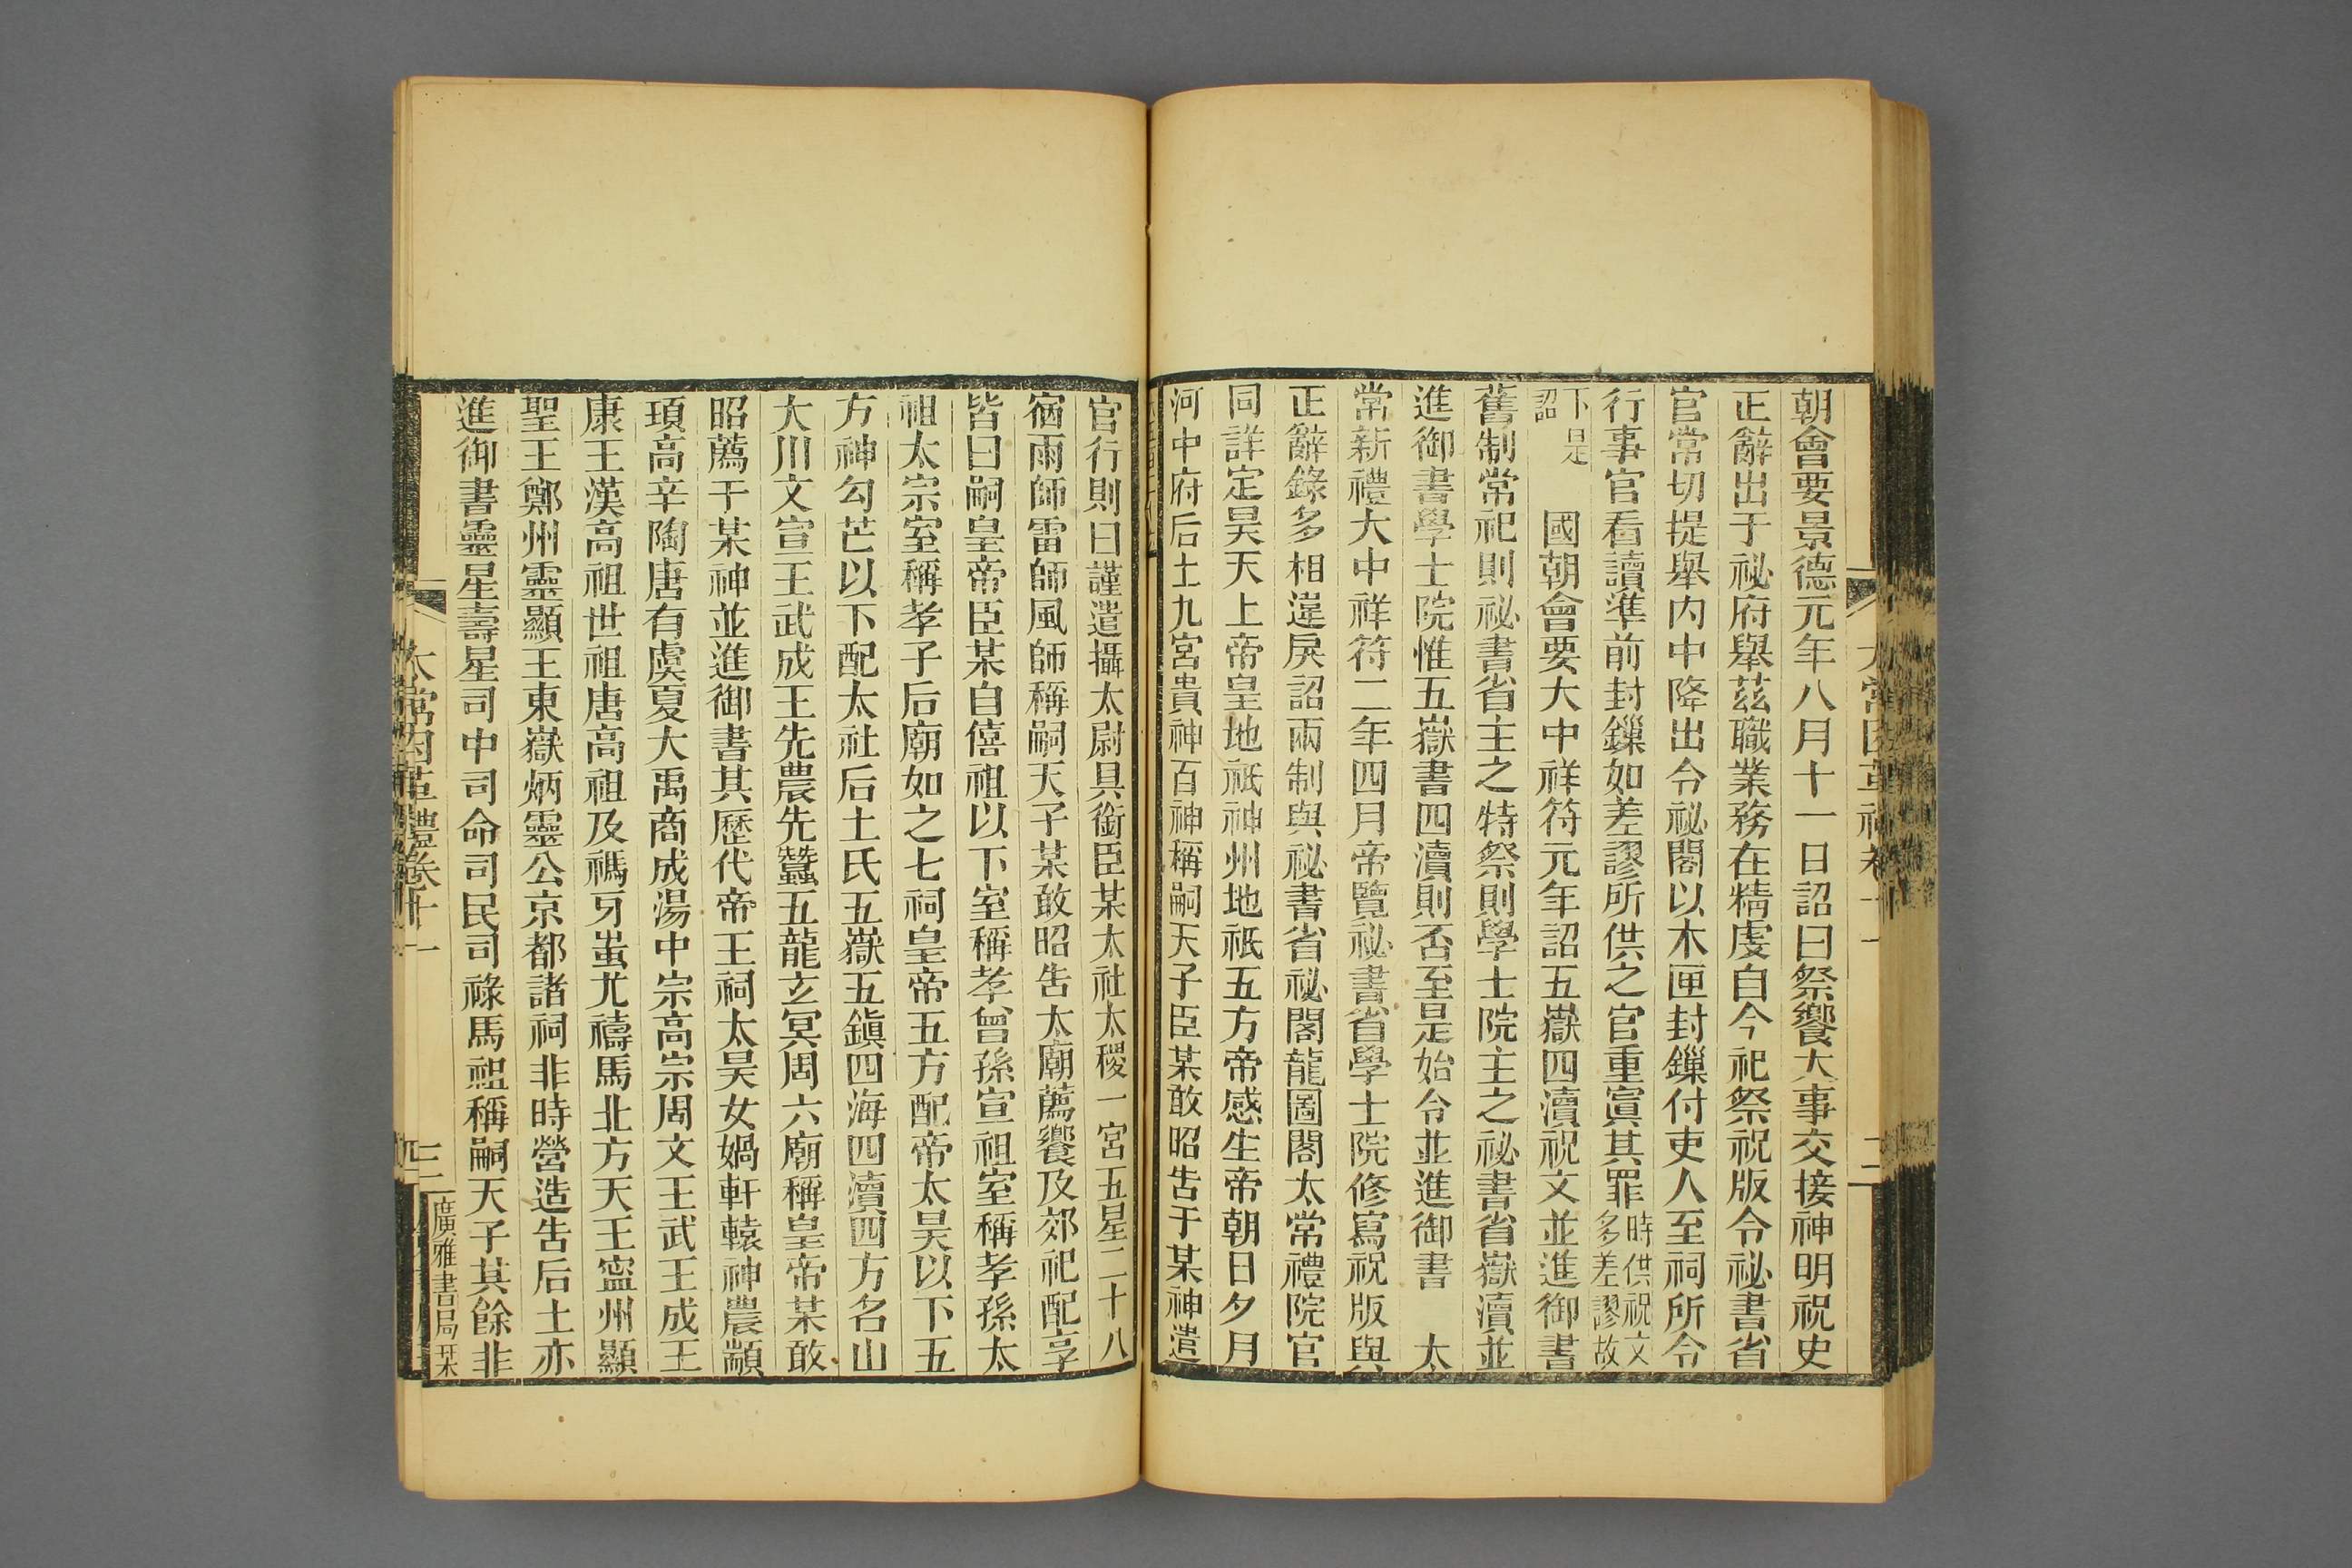 朝會要景德元年八月十一日詔曰祭饗大事交接神明祝史
正辭出于祕府舉茲職業務在精虔自今祀祭祝版令祕書省
官常切提舉內中降出令祕閣以木匣封鏁付吏人至祠所令
行事官看讀準前封鏁如差謬所供之官重寘其罪時供祝文多差謬故
下是詔　國朝會要大中祥符元年詔五嶽四瀆祝文並進御書
舊制常祀則祕書省主之特祭則學士院主之祕書省嶽瀆並
進御書學士院惟五嶽書四瀆則否至是始令並進御書　太
常新禮大中祥符二年四月帝覽祕書省學士院修寫祝版與
正辭錄多相違戾詔兩制與祕書省祕閣龍圖閣太常禮院官
同詳定昊天上帝皇地祇神州地祇五方帝感生帝朝日夕月
河中府后土九宮貴神百神稱嗣天子臣某敢昭告于某神遣
官行則曰謹遣攝太尉具銜臣某太社太稷一宮五星二十八
宿雨師雷師風師稱嗣天子某敢昭告太廟薦饗及郊祀配享
皆曰嗣皇帝臣某自僖祖以下室稱孝曾孫宣祖室稱孝孫太
祖太宗室稱孝子后廟如之七祠皇帝五方配帝太昊以下五
方神勾芒以下配太社后土氏五嶽五鎮四海四瀆四方名山
大川文宣王武成王先農先蠶五龍玄冥周六廟稱皇帝某敢
昭薦于某神並進御書其歷代帝王祠太昊女媧軒轅神農顓
頊高辛陶唐有虞夏大禹商成湯中宗高宗周文王武王成王
康王漢高祖世祖唐高祖及禡牙蚩尤禱馬北方天王寍州顯
聖王鄭州靈顯王東嶽炳靈公京都諸祠非時營造告后土亦
進御書靈星壽星司中司命司民司祿馬祖稱嗣天子其餘非
太常因革禮卷十一
三
廣雅書局栞